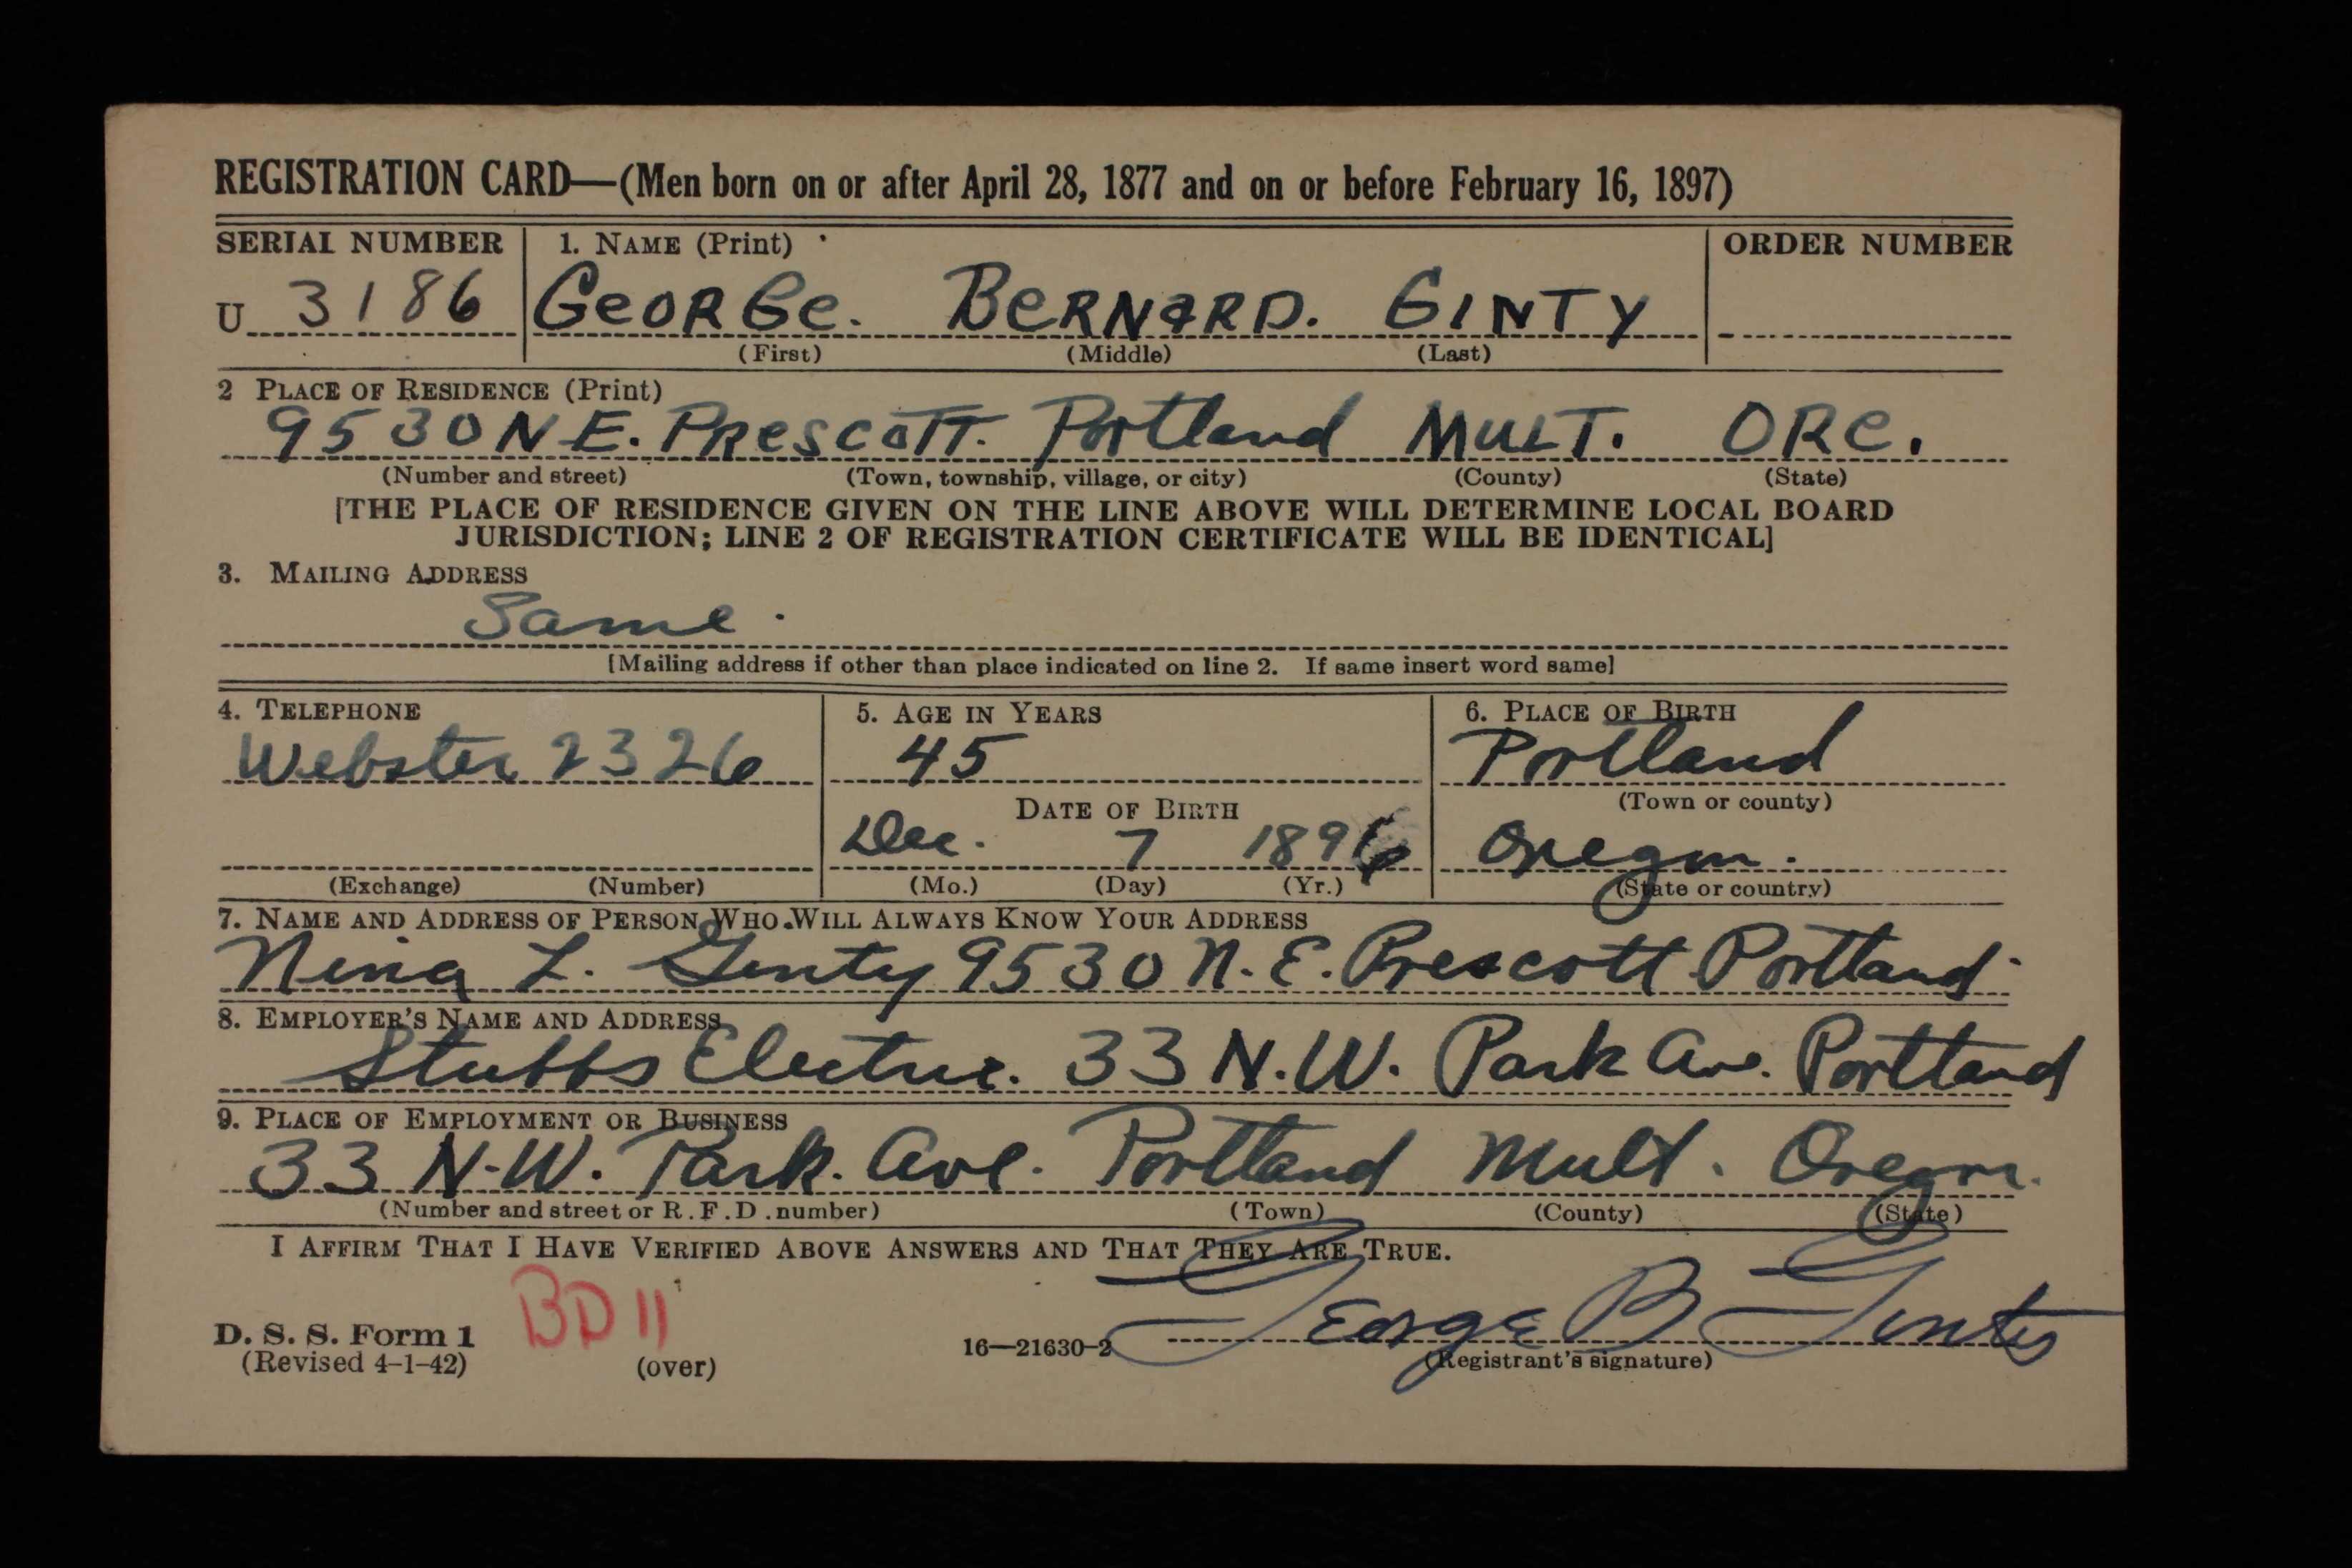 REGISTRATION CARD—(Men born on or after April 28, 1877 and on or before February 16, 1897)
SERIAL NUMBER 1. NAME (Print) ORDER NUMBER
U 3186 GeORGe. BeRNaRD. GINTY
(First) (Middle) (Last)
2 PLACE OF RESIDENCE (Print)
9530 N E. PRescoTT. Portland MULT. ORe.
(Number and street) (Town, township, village, or city) (County) (State)
[THE PLACE OF RESIDENCE GIVEN ON THE LINE ABOVE WILL DETERMINE LOCAL BOARD
JURISDICTION; LINE 2 OF REGISTRATION CERTIFICATE WILL BE IDENTICAL]
3. MAILING ADDRESS
Same.
[Mailing address if other than place indicated on line 2. If same insert word same]
4. TELEPHONE 5. AGE IN YEARS 6. PLACE OF BIRTH
Webster 2326 45 Portland
(Town or county)
DATE OF BIRTH
Dec. 7 1896 Oregon.
(Exchange) (Number) (Mo.) (Day) (Yr.) (State or country)
7. NAME AND ADDRESS OF PERSON WHO WILL ALWAYS KNOW YOUR ADDRESS
Nina L. Ginty 9530 N. E. Prescott. Portland
8. EMPLOYER'S NAME AND ADDRESS
Stubbs Electric. 33 N.W. Park Ave. Portland
9. PLACE OF EMPLOYMENT OR BUSINESS
33 N.W. Park. Ave. Portland Mult. Oregon.
(Number and street or R.F.D. number) (Town) (County) (State)
I AFFIRM THAT I HAVE VERIFIED ABOVE ANSWERS AND THAT THEY ARE TRUE.
BD 11
D. S. S. Form 1 George B Ginty
(Revised 4-1-42) (over) 16—21630-2 (Registrant's signature)